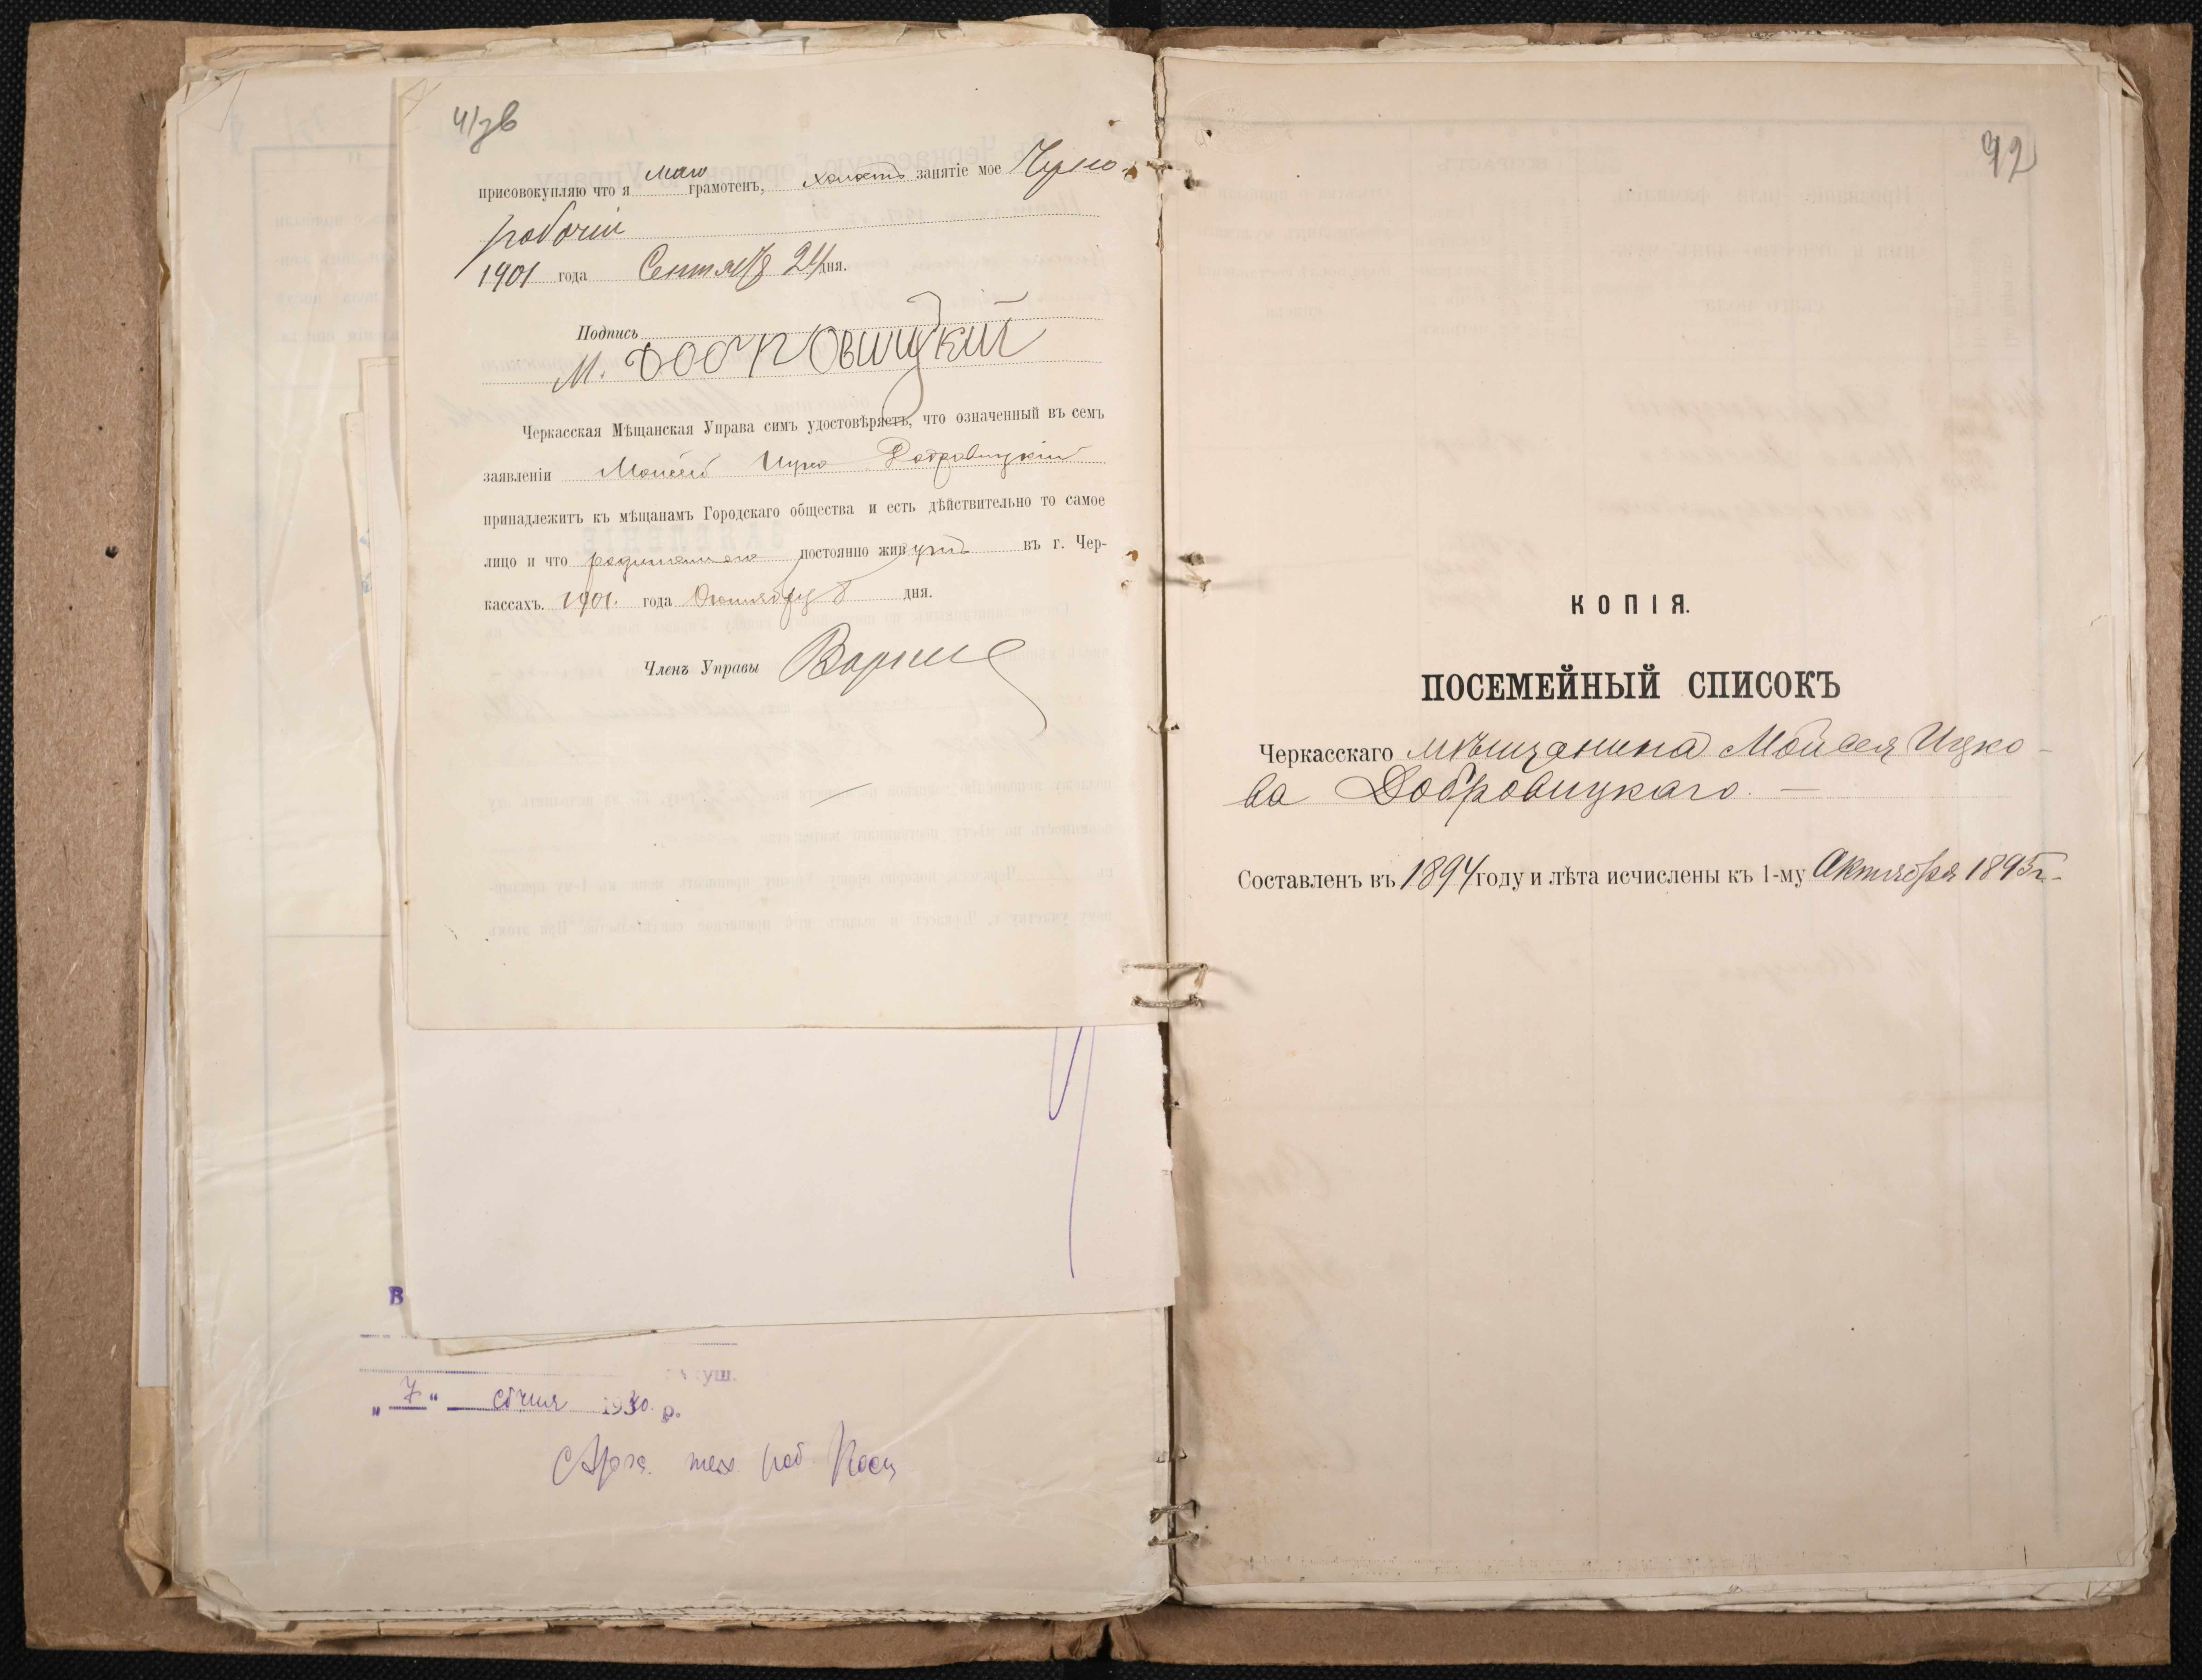 41зв
присовокупляю что я мало грамотенъ, холостъ занятіе мое Черно-
рабочій
1901 года Сентября 24 дня.
Подпись
М. Добровицкий
Черкасская Мѣщанская Управа симъ удостовѣряетъ, что означенный въ семъ
заявленіи Моисей Ицко Добровицкій
принадлежитъ къ мѣщанамъ Городскаго общества и есть дѣйствительно то самое
лицо и что родители его постоянно живутъ въ г. Чер-
кассахъ. 1901. года Октября 8 дня.
Членъ Управы
В
куш.
"7" січня 1930 р.
42
КОПІЯ.
ПОСЕМЕЙНЫЙ СПИСОКЪ
Черкасскаго мѣщанина Мойсея Ицко-
ва Добровицкаго. —
Составленъ въ 1894 году и лѣта исчислены къ 1-му Октября 1895 г.